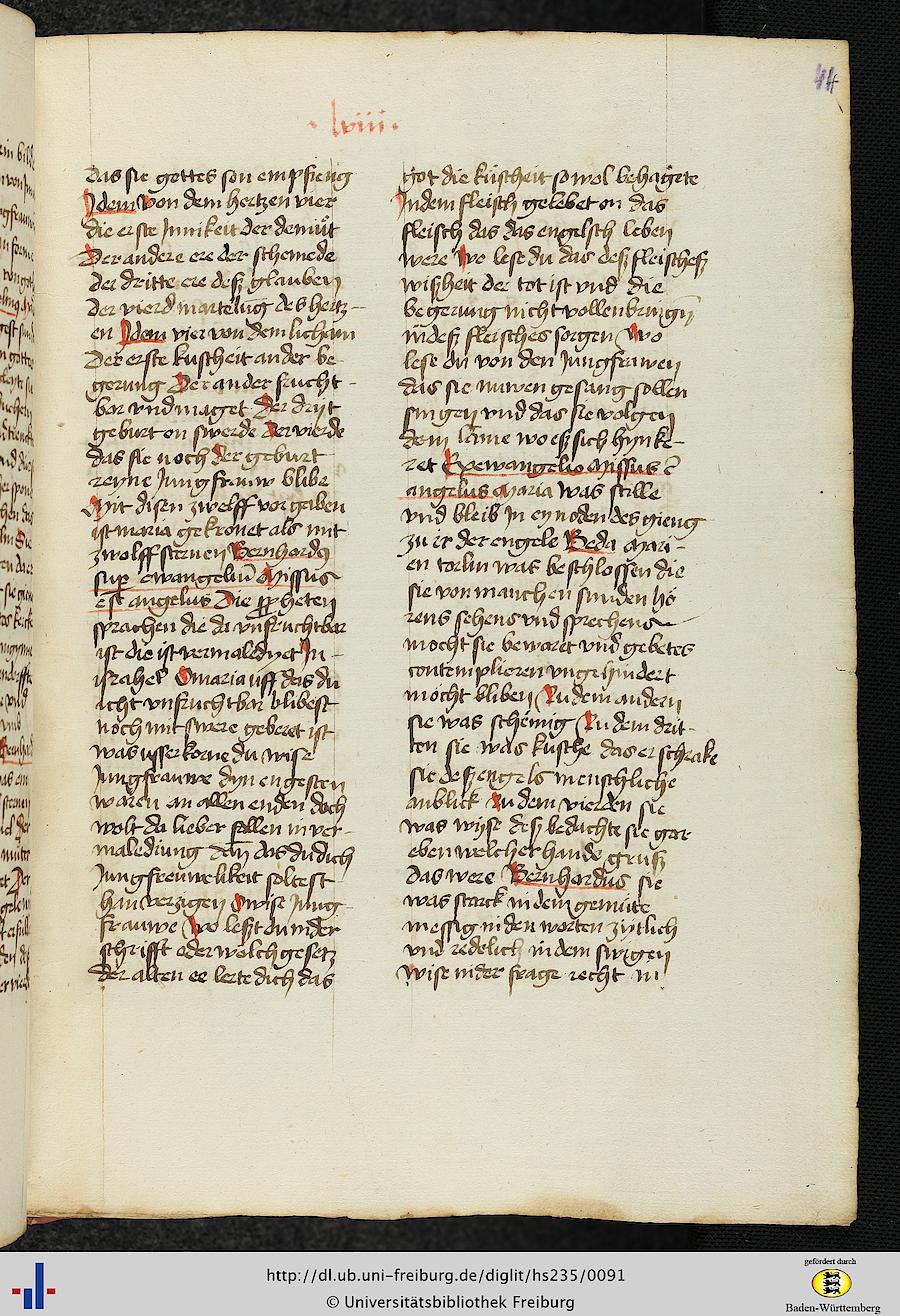 44
· lviii ·
das sie gottes son empfieng
Idem Von dem hertzen vier
die erste Innikeit der demüt
Der andere ere der schemede
der dritte ere desz glauben
der vierd martelug des hertz-
en Idem vier von dem licham
Der erste kuscheit an der be-
gerung Der ander frucht-
bar vnd maget Der drit
geburt on swerde Der vierde
das sie noch der geburt
reyne Jungfrauw blibe
Mit disen zwelff vorgaben
ist maria gekronet als mit
zwolff sternen Bernhardus
sup ewangeliū Missus
est angelus Die ppheten
sprachen die da vnfruchtbar
ist die ist vermaledyet In-
israhel O maria uff das du
icht vnfruchtbar blibest
noch mit swere geberet ist
was usserkorne du wise
Jungfrauwe dyn engesten
waren an allen enden doch
wolt da lieber fallen in ver-
malediung dañ das du dich
Jungfreuwelikeit soltest
han verzigen O wise Jung-
frauwe Wo lesst du in der
schrifft oder welch gesetz
der alten ee lerte dich das
got die küscheit so wol behagete
In dem fleisch gelebet on das
fleisch das das engelsch leben
were Wo lese du das desz fleischesz
wiszheit der tot ist vnd die
begerung nicht vollenbringen
in desz fleisches sorgen Wo
lese du von den Jungfrawen
das sie nuwen gesang sollen
singen vnd das sie volgen
dem lamme wo esz sich hynke-
ret Ex ewangelio Missus ē
angelus Maria was stille
vnd bleib In eynoden des gieng
zu ir der engele Beda Mari-
en torlin was beschlossen die
sie von manchen sunden hö
rens sehens vnd sprechens
mocht sie bewaret vnd gebetes
contemplieren vngehindert
mocht bliben Zu dem andern
sie was schemig Zu dem drit-
ten sie was kusche das erschrake
sie desz engels menschliche
anblick Zu dem vierden sie
was wyse desz bedachte sie gar
eben welcher hande grusz
das were Bernhardus sie
was starck in dem gemüte
messig in den worten zytlich
vnd redelich in dem swigen
wise in der frage recht in
http://dl.ub.uni-freiburg.de/diglit/hs235/0091
© Universitätsbibliothek Freiburg
gefördert durch
Baden-Württemberg